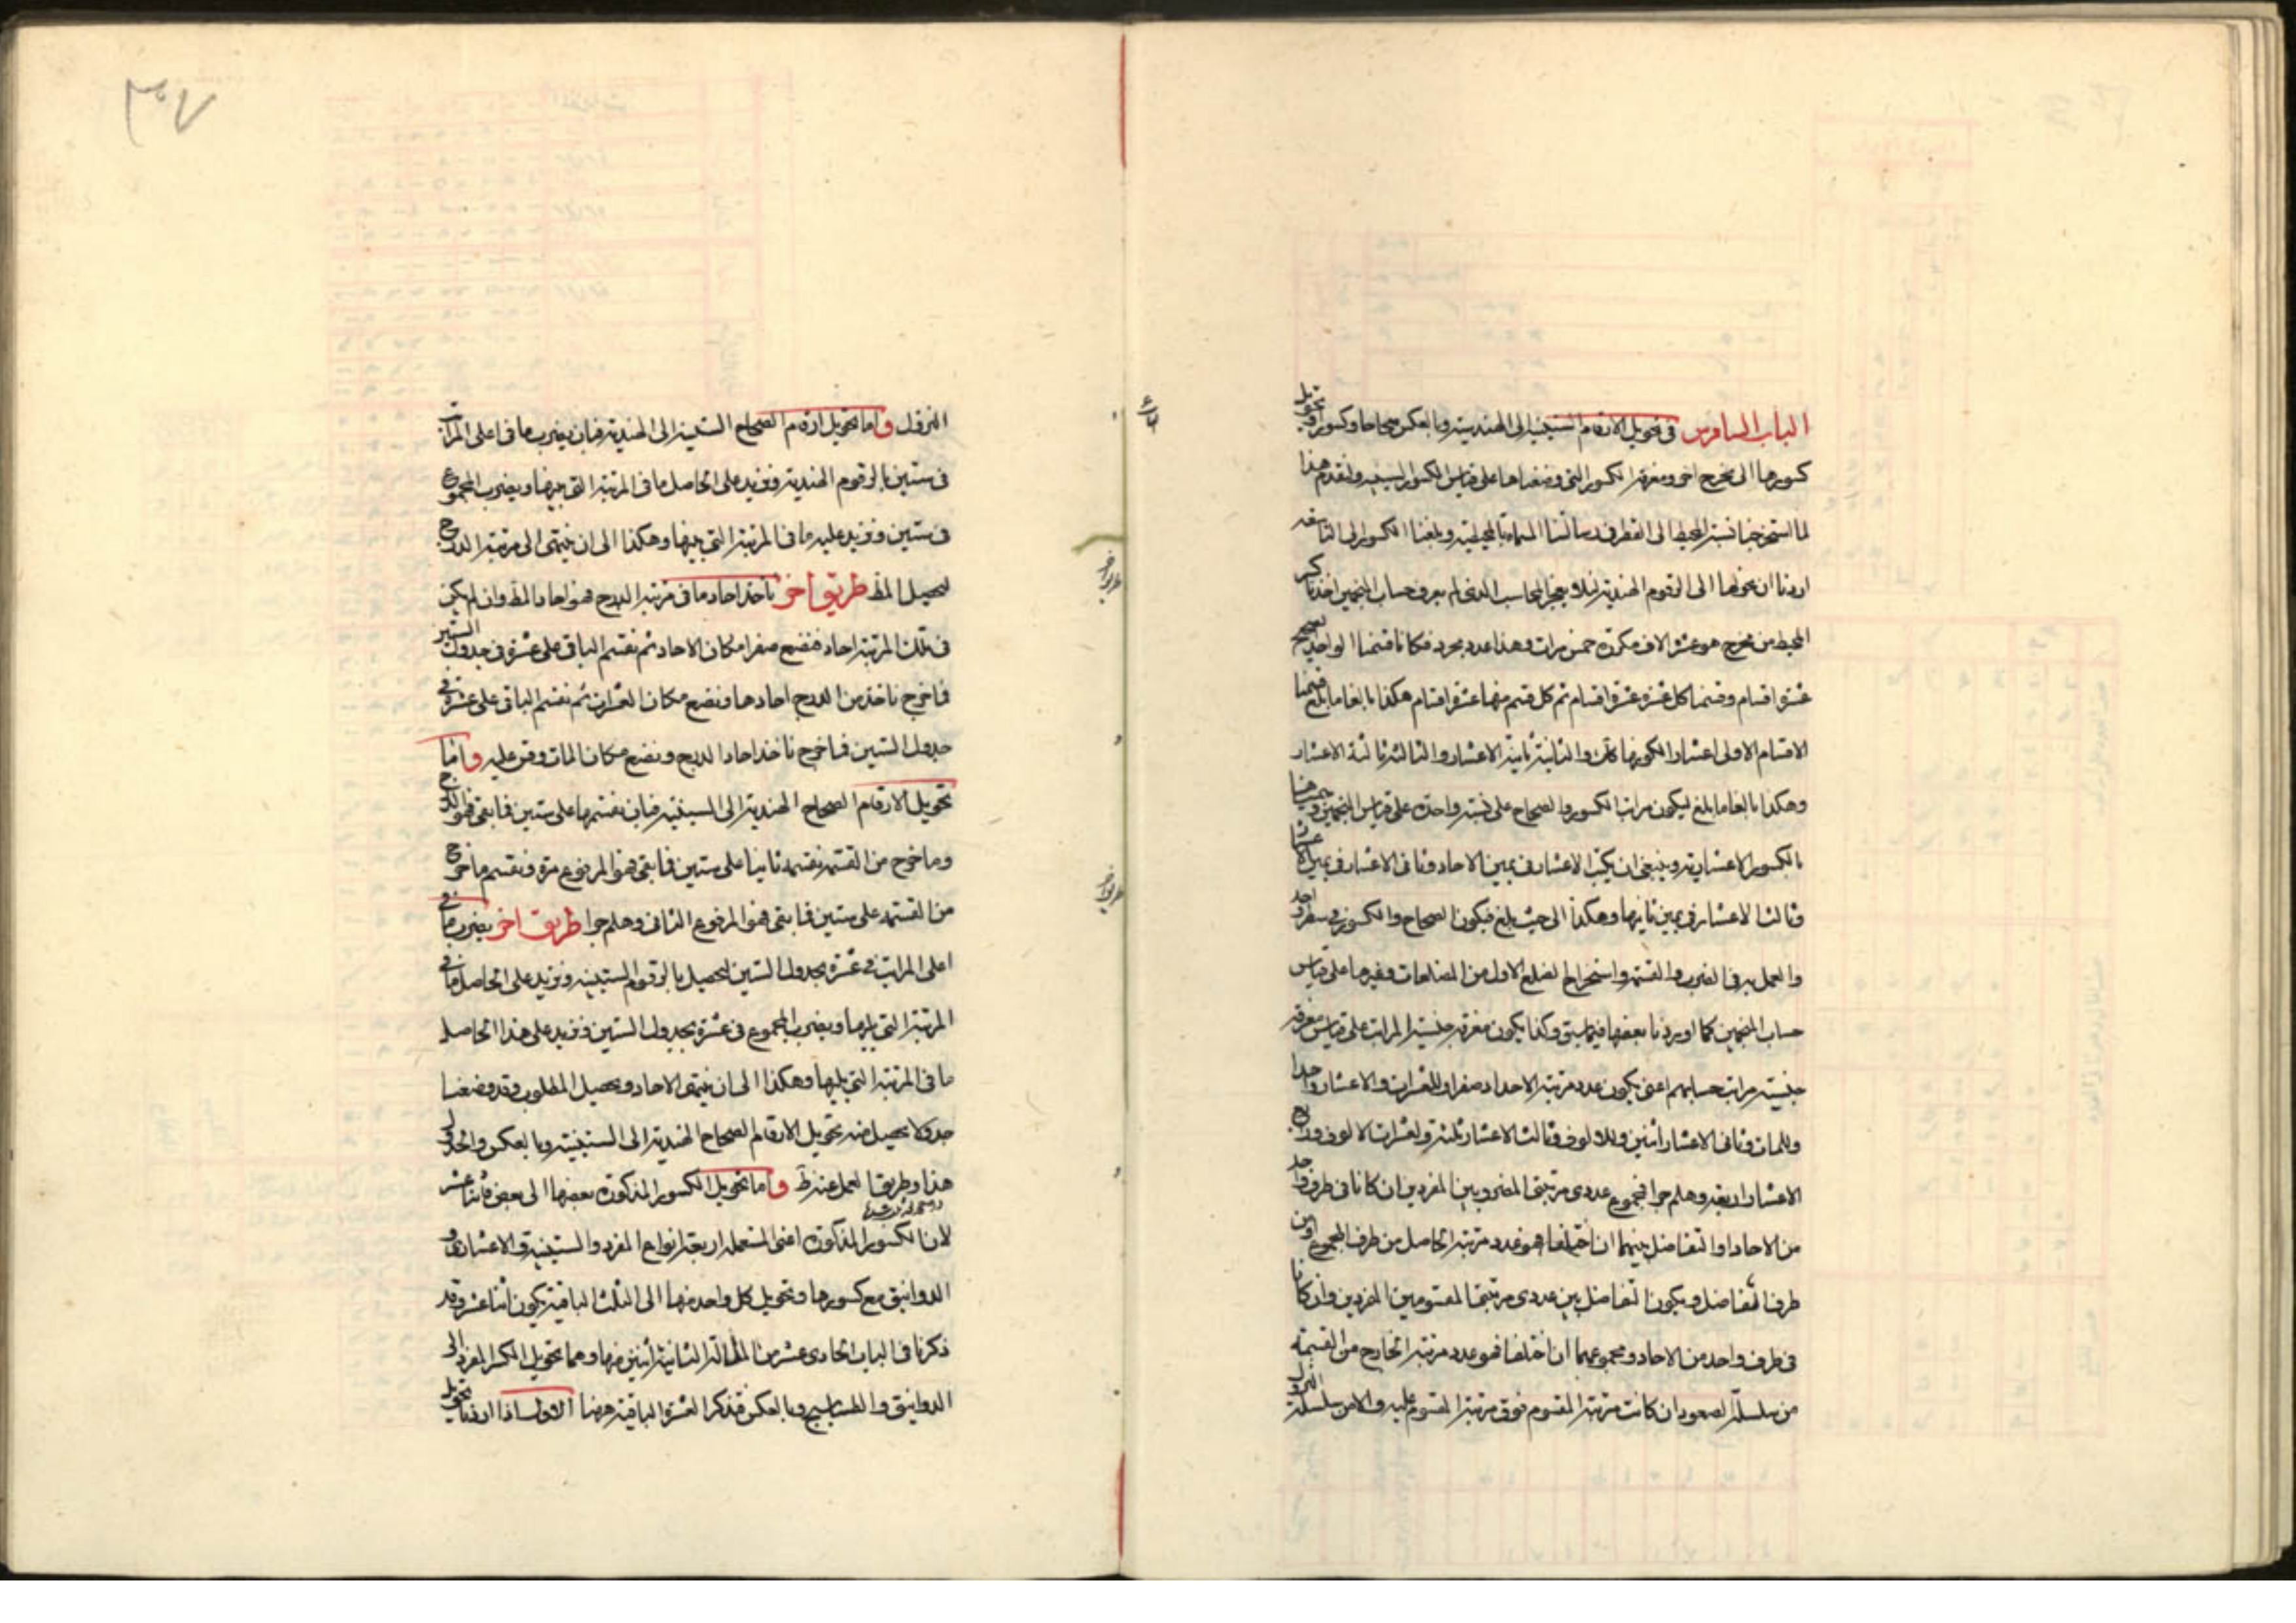 الباب السادس في تحويل الارقام الستينية الى الهندية وبالعكس صحاحا وكسورا وتحويل
كسورها الى مخرج اخر ومعرفة الكسور التي وضعناها على قياس الكسور الستينية ولنقدم هذا
لما استخرجنا نسبة المحيط الى القطر في رسالتنا المسماة بالمحيطية وبلغنا الكسور الى التاسعة
اردنا ان نحولها الى الرقوم الهندية لئلا يعجز المحاسب الذي لم يعرف حساب المنجمين اخذنا كسر
المحيط من مخرج هو عشرة الاف مكررة خمس مرات وهذا عدد مجرد فكانا قسمنا الواحد الصحيح
عشرة اقسام وقسمنا كل عشرة عشرة اقسام ثم كل قسم منها عشرة اقسام هكذا بالغا ما بلغ فسمينا
الاقسام الاولى اعشارا لكونها كذلك والثانية ثانية الاعشار والثالثة ثالثة الاعشار
وهكذا بالغا ما بلغ ليكون مراتب الكسور والصحاح على نسبة واحدة على قياس المنجمين وسميناها
بالكسور الاعشارية وينبغي ان يكتب الاعشار في يمين الاحاد وثاني الاعشار في يمين الاعشار
وثالث الاعشار في يمين ثانيها وهكذا الى حيث بلغ فيكون الصحاح والكسور في سطر واحد
والعمل به في الضرب والقسمة واستخراج الضلع الاول من المضلعات وغيرها على قياس
حساب المنجمين كما اوردنا بعضها فيما سبق وكذا يكون معرفة جنسية المراتب على قياس معرفة
جنسية مراتب حسابهم اعني يكون عدد مرتبة الاحاد صفرا وللعشرات والاعشار واحدا
وللمات وثاني الاعشار اثنين وللالوف وثالث الاعشار ثلثة ولعشرات الالوف ورابع
الاعشار اربعة وهلم جرا فمجموع عددي مرتبتي المضروبين المفردين ان كانا في طرف واحد
من الاحاد او التفاضل بينهما ان اختلفا هو عدد مرتبة الحاصل من طرف المجموع او من
طرف التفاضل ويكون التفاضل بين عددي مرتبتي المقسومين المفردين وان كانا
في طرف واحد من الاحاد ومجموعهما ان اختلفا فهو عدد مرتبة الخارج من القسمة
من سلسلة الصعود ان كانت مرتبة المقسوم فوق مرتبة المقسوم عليه والا من سلسلة النزول
النزول واما تحويل ارقام الصحاح الستينية الى الهندية فبان يضرب ما في اعلى المراتب
في ستين بالرقوم الهندية ونزيد على الحاصل ما في المرتبة التي جنبها ويضرب المجموع
في ستين ونزيد عليه ما في المرتبة التي جنبها وهكذا الى ان ينتهى الى مرتبة الدرج
ليحصل المط طريق اخر ناخذ احاد ما في مرتبة الدرج فهو احاد المط وان لم يكن
في تلك المرتبة احاد فنضع صفرا مكان الاحاد ثم نقسم الباقي على عشرة في جدول الستين
فما خرج ناخذ من الدرج احادها ونضع مكان العشرات ثم نقسم الباقي على عشرة في
جدول الستين فما خرج ناخذ احاد الدرج ونضع مكان المات وقس عليه واما
تحويل الارقام الصحاح الهندية الى الستينية فبان نقسمها على ستين فما بقى فهو الدرج
وما خرج من القسمة نقسمه ثانيا على ستين فما بقى فهو المرفوع مرة ونقسم ما خرج
من القسمة على ستين فما بقى فهو المرفوع الثاني وهلم جرا طريق اخر يضرب ما في
اعلى المراتب في عشرة بجدول الستين ليحصل بالرقوم الستينية ونزيد على الحاصل ما في
المرتبة التي تليها ويضرب المجموع في عشرة بجدول الستين ونزيد على هذا الحاصل
ما في المرتبة التي يليها وهكذا الى ان ينتهى الاحاد ويحصل المطلوب وقد وضعنا
جدولا يحصل منه تحويل الارقام الصحاح الهندية الى الستينية وبالعكس والجدول
هذا وطريق العمل عنه ظ واما تحويل الكسور المذكورة بعضها الى بعض فاثنا عشر
لان الكسور المذكورة اعني المستعملة اربعة انواع المفرد والستينية والاعشارية و
الدوانيق مع كسورها وتحويل كل واحد منها الى الثلث الباقية يكون اثنا عشر وقد
ذكرنا في الباب الحادي عشر من المقالة الثانية اثنين منها وهما تحويل الكسر المفرد الى
الدوانيق والطساسيج وبالعكس فنذكر العشرة الباقية ههنا الاول اذا اردنا تحويل
طريق اخر
طريق اخر